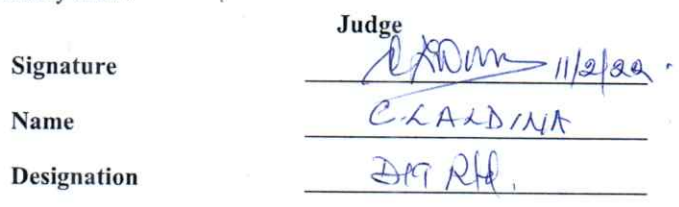 Judge
Signature 11/2/22.
Name C. LALDINA
Designation